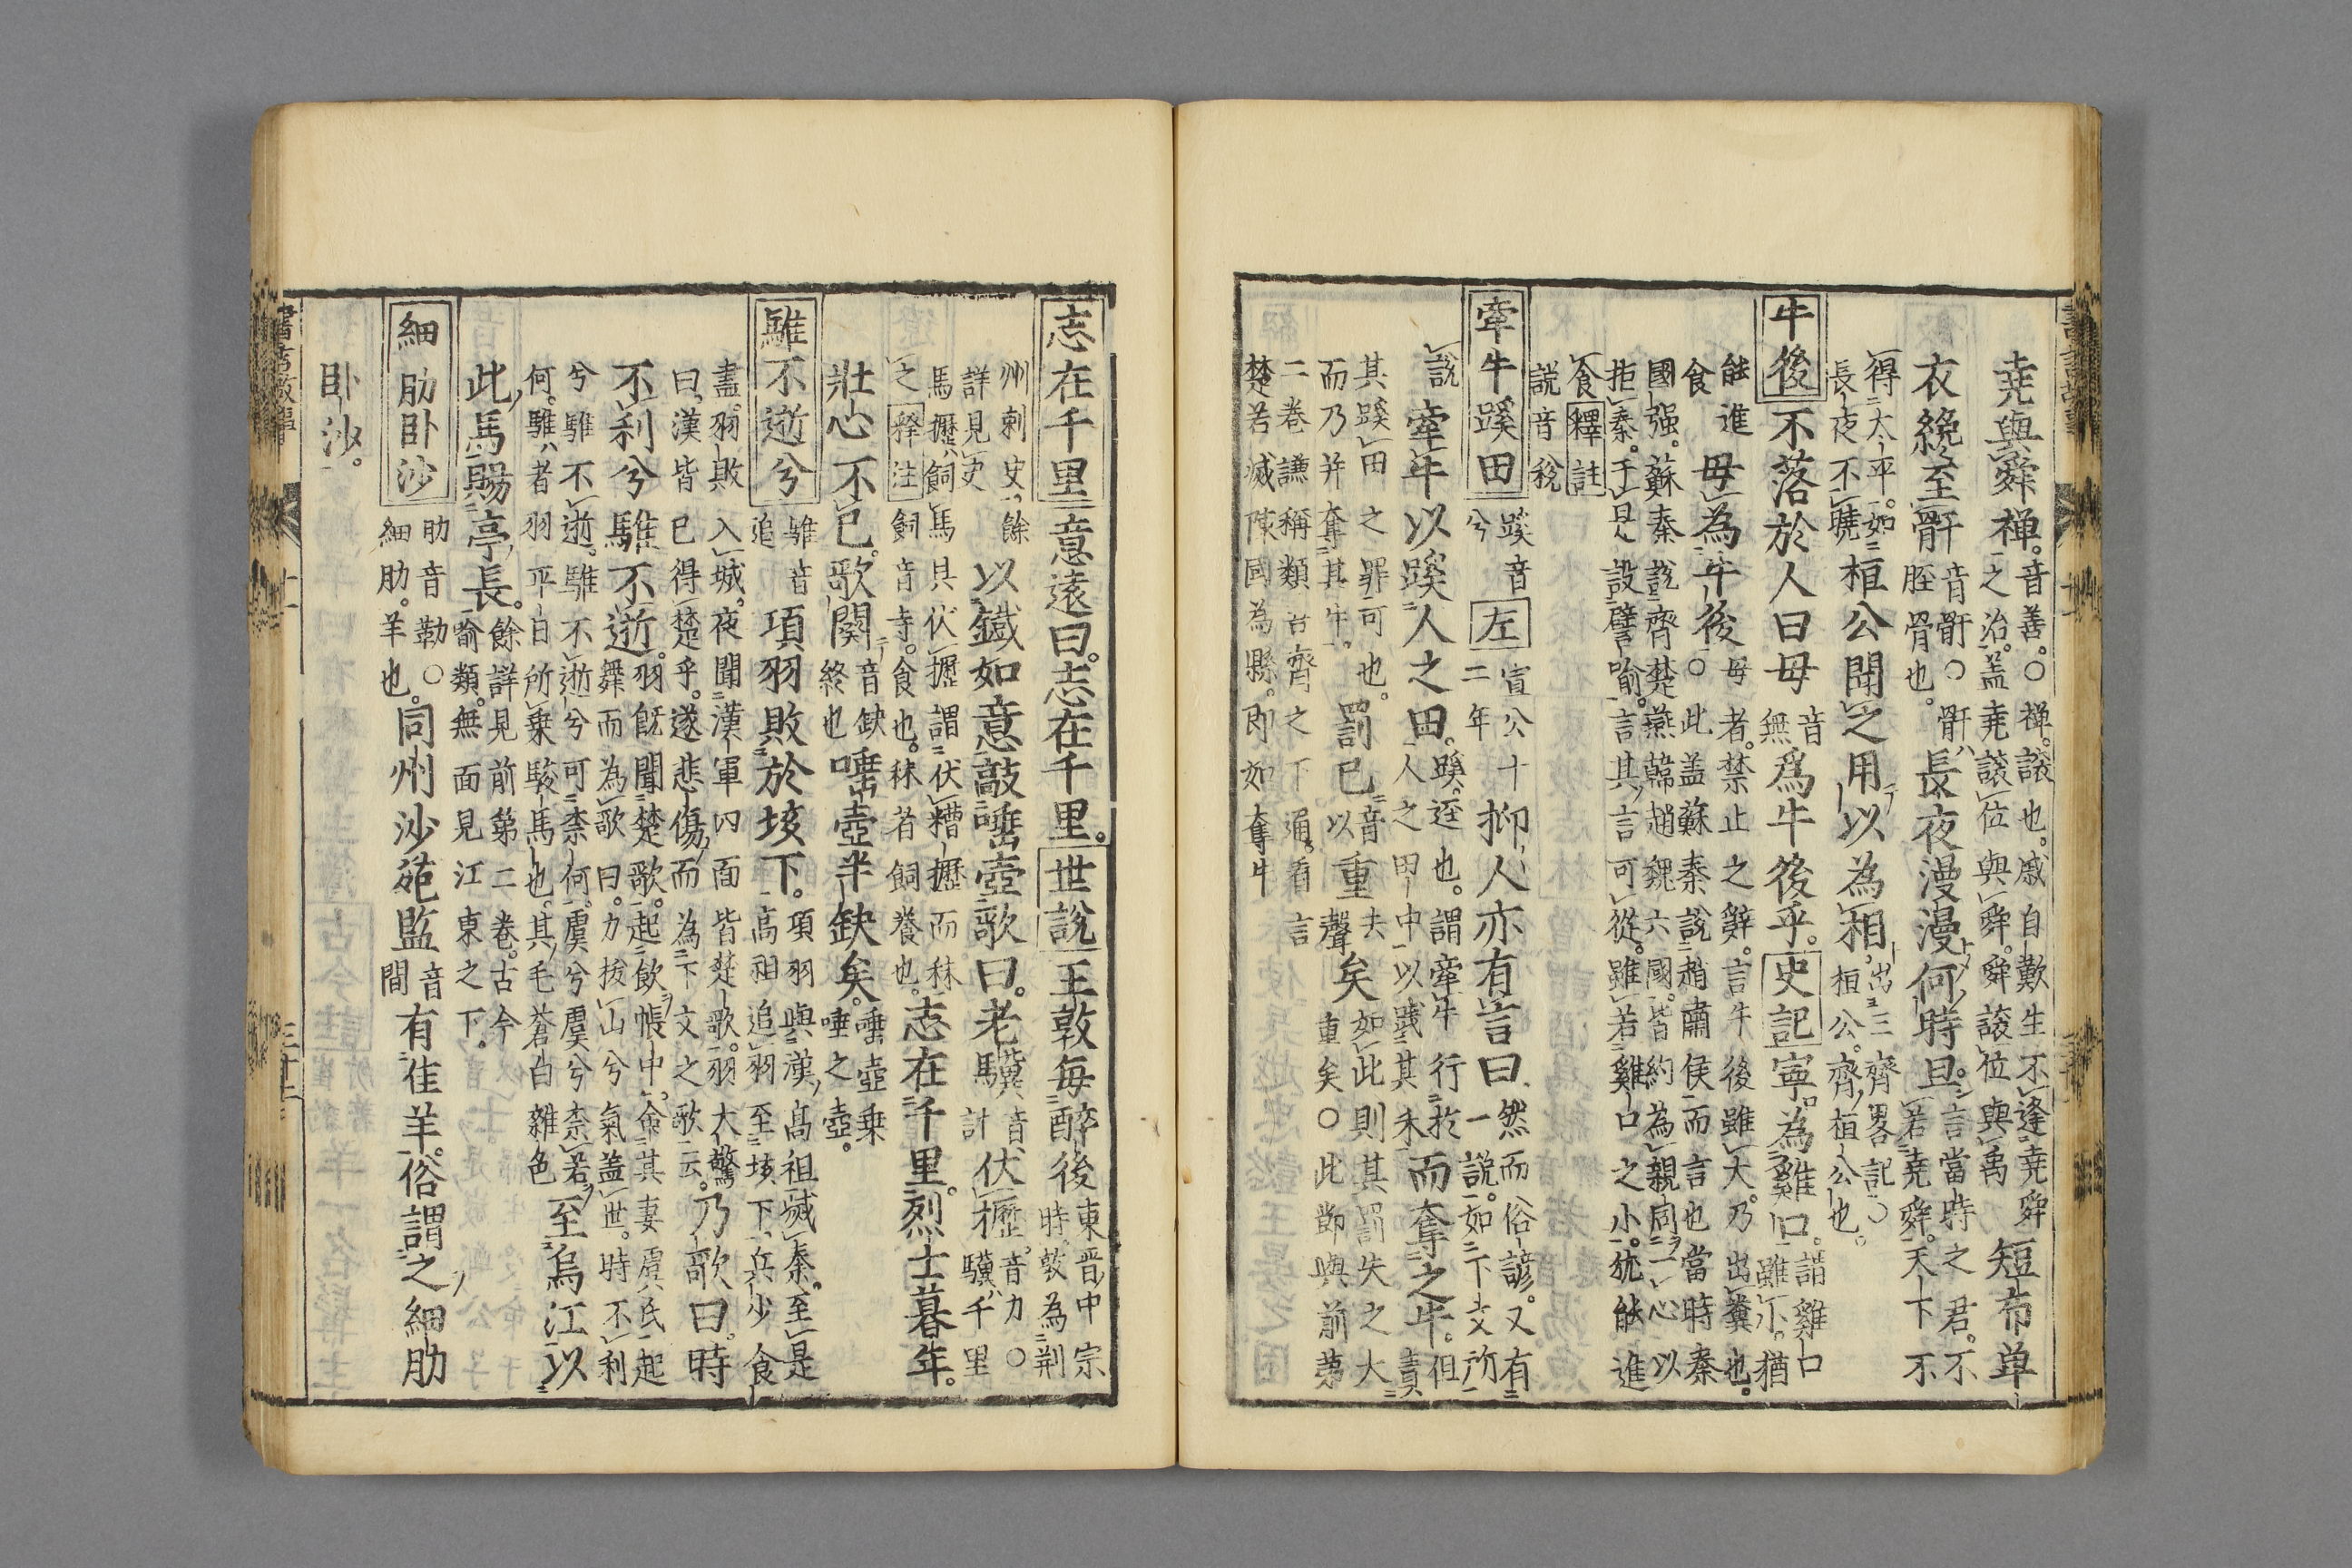 堯與舜禅。音善。○禅。譲也。戚自歎生不逢堯舜
之治。盖堯譲位與舜。舜譲位與禹 短布单
衣纔至骭 音骭○骭ハ
胫骨也。 長夜漫漫何時旦。言當時之君。不
若堯舜。天下不
得太平。如
長夜不曉 桓公聞之用以為相 出三齊畧記○
桓公。齊桓公也。
牛後 不落於人曰毋 音
無 爲牛後乎。史記寧為雞口。 諧雞口
雖小。猶
能進
食 毋為牛後○ 毋者。禁止之辭。言牛後雖大。乃出糞也。
此盖蘇秦說趙肅侯而言也當時秦
國强。蘇秦說齊楚燕韓趙魏六國。皆約為親同一心以
拒秦。于是設譬喻。言其言可從。雖若雞口之小。犹能進
食 釋註
說音稅
牽牛蹊田 蹊音
兮 左 宣公十
二年 抑人亦有言曰 然而俗諺。又有
一說。如下文所
說 牽牛以蹊人之田。蹊。逕也。謂牽牛行於
人之田中以踐其禾 而奪之牛。但責
其蹊田之罪可也。
而乃并奪其牛。 罰已 音
以 重 去
聲 矣 如此則其罰失之大
重矣○此節與前第
二卷謙稱類台齊之下通看言
楚若滅陳國為縣。即如奪牛
志在千里 意遠曰。志在千里。世說 王敦毎醉後 東晋中宗
時。敦為荆
州刺史、餘
詳見史 以鐵如意敲唾壺歌曰。老驥 音
計 伏櫪 音力○
驥ハ千里
馬櫪ハ飼馬具伏櫪謂伏糟櫪而秣
之 釋注 飼音寺。食也。秣者飼養也。志在千里。烈士暮年。
壯心不已。歌闋 音缺
終也 唾壺半缺矣。唾壺乗
唾之壺。
騅不逝兮 騅音
追 項羽敗於垓下。項羽與漢高祖滅秦。至是
高祖追羽至垓下、兵少食
盡。羽敗入城。夜聞漢軍四面皆楚歌。羽大驚
曰。漢皆已得楚乎。遂悲傷而為下文之歌云。 乃歌曰。時
不利兮騅不逝。羽既聞楚歌。起飲帳中。命其妻虞氏起
舞而為歌曰。力拔山兮氣盖世。時不利
兮騅不逝。騅不逝兮可柰何。虞兮虞兮柰若
何。騅ハ者羽平日所乗駿馬也。其毛蒼白雜色 至烏江以
此馬賜亭長。餘詳見前第二卷。古今
喻類。無面見江東之下。
細肋卧沙 肋音勒○
細肋。羊也。 同州沙苑監 音
間 有佳羊。俗謂之細肋
卧沙。